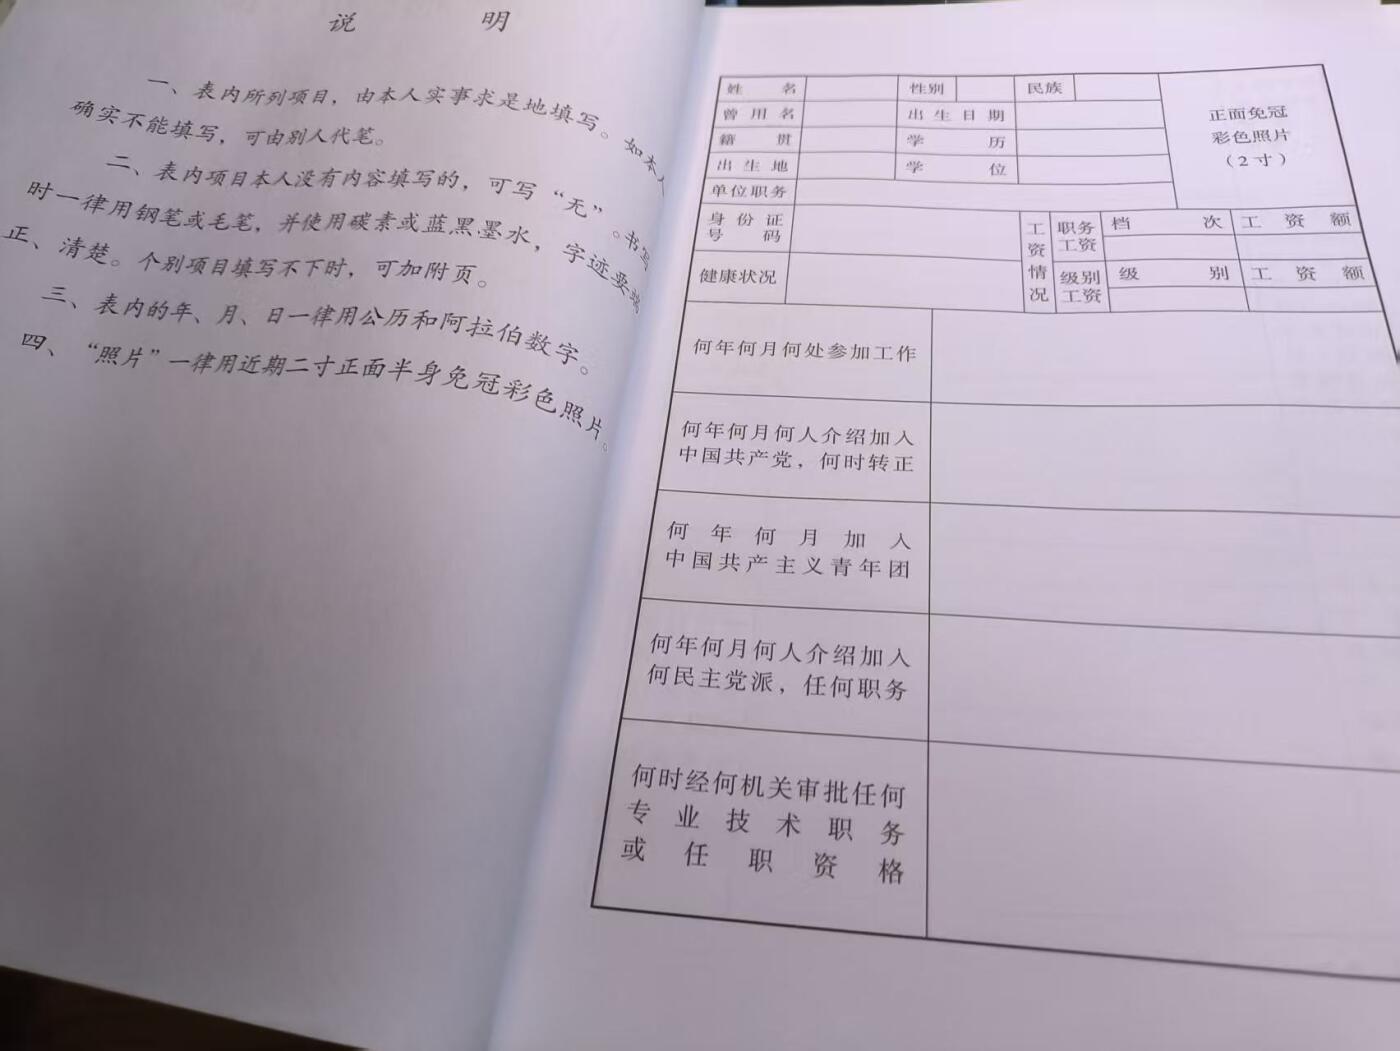 说 明
一、表内所列项目，由本人实事求是地填写。如本人
确实不能填写，可由别人代笔。
二、表内项目本人没有内容填写的，可写“无”。书写
时一律用钢笔或毛笔，并使用碳素或蓝黑墨水，字迹要端
正、清楚。个别项目填写不下时，可加附页。
三、表内的年、月、日一律用公历和阿拉伯数字。
四、“照片”一律用近期二寸正面半身免冠彩色照片。
姓 名 性别 民族
正面免冠
彩色照片
（2寸）
曾用名 出生日期
籍 贯 学 历
出生地 学 位
单位职务
身份证
号 码
工资情况
职务
工资
档 次 工资额
健康状况
级别
工资
级 别 工资额
何年何月何处参加工作
何年何月何人介绍加入
中国共产党，何时转正
何年何月加入
中国共产主义青年团
何年何月何人介绍加入
何民主党派，任何职务
何时经何机关审批任何
专业技术职务
或任职资格